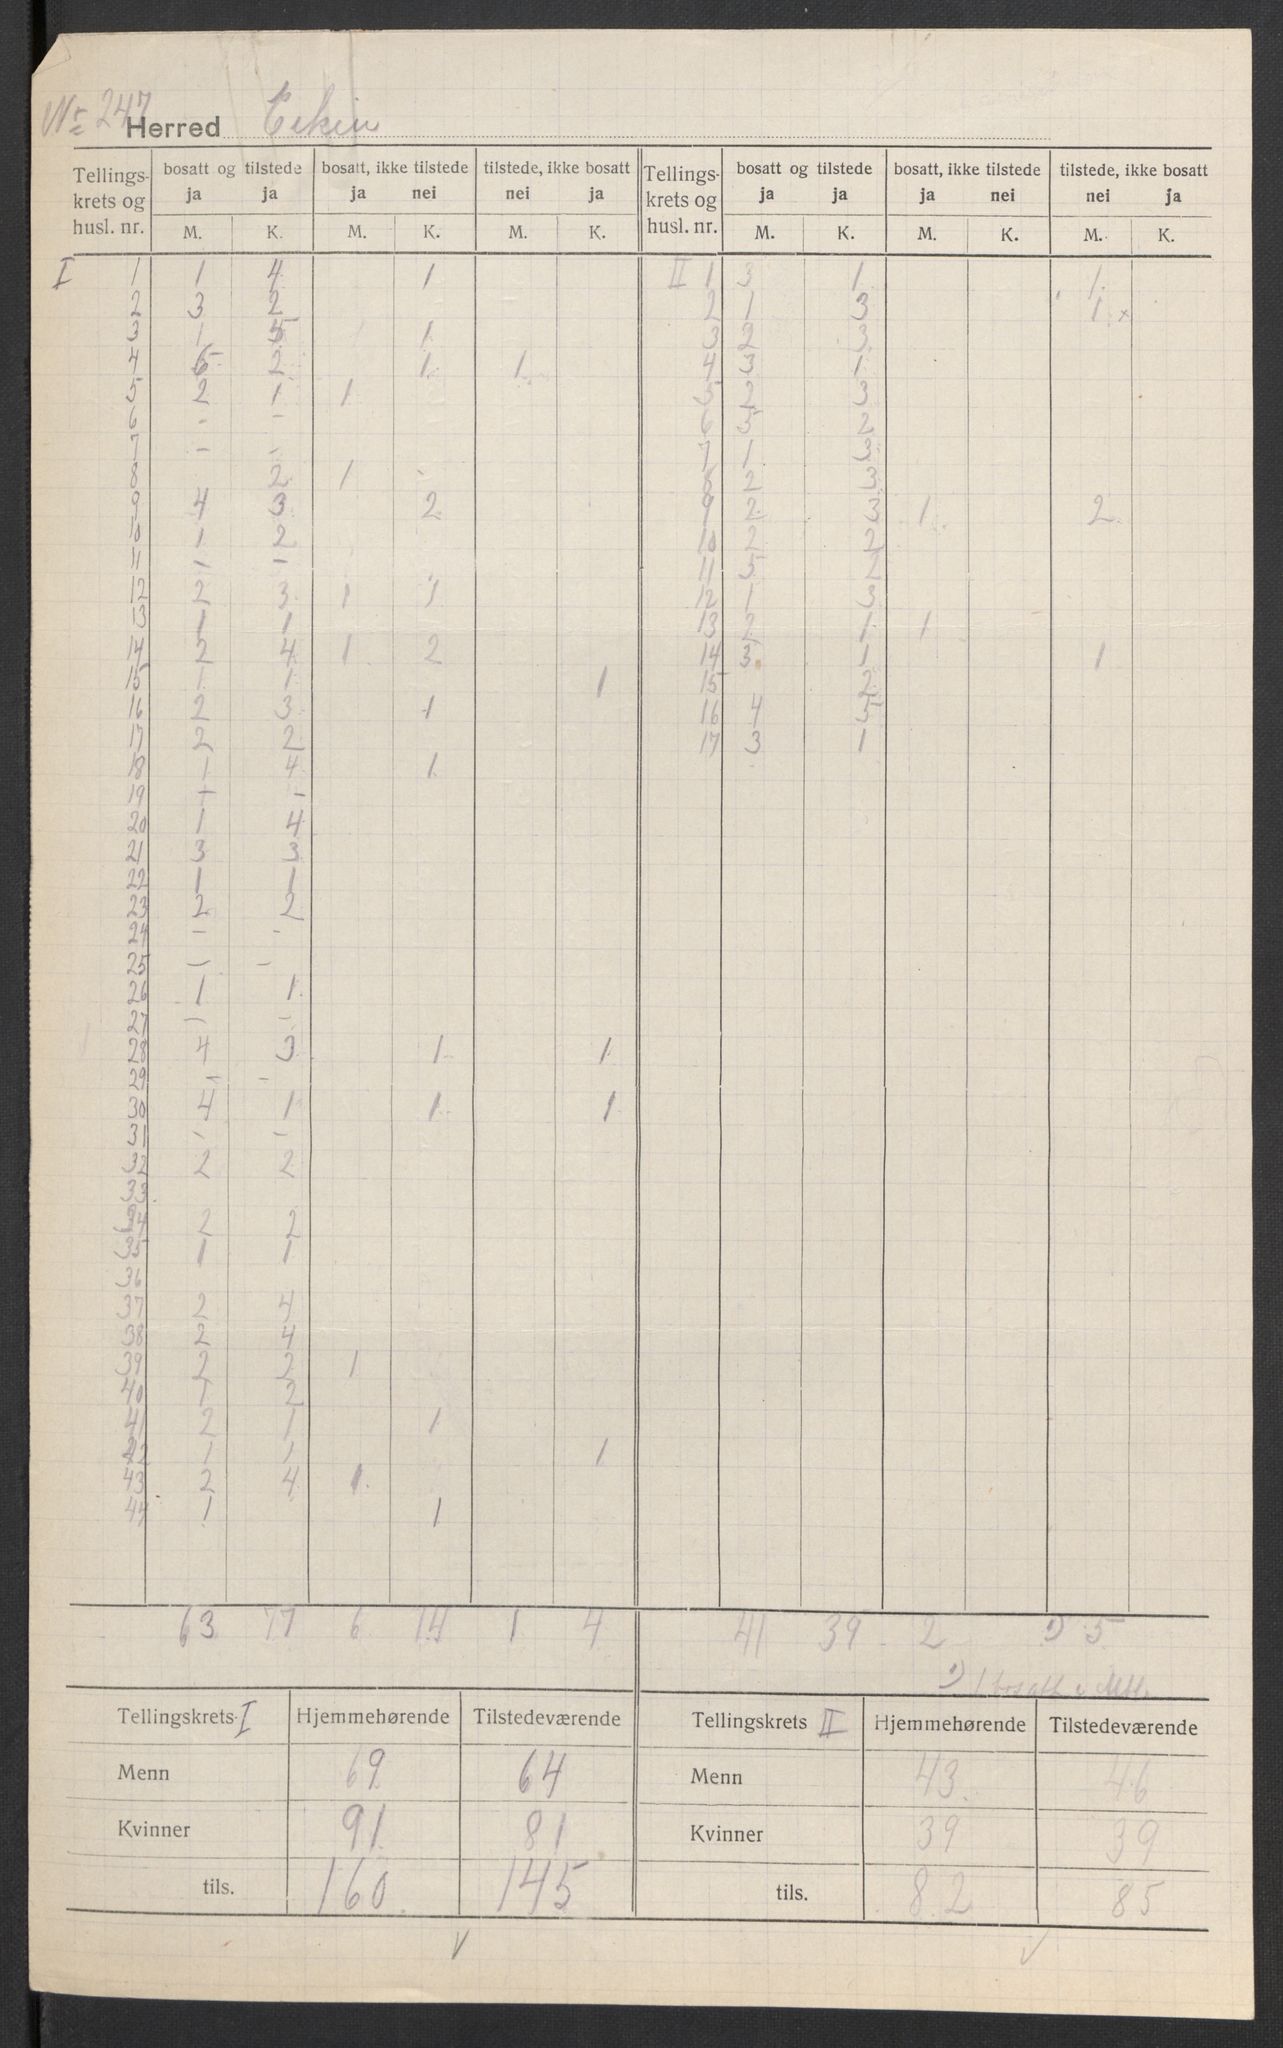 Nr 247
Herred Eiken
Tellings- krets og husl. nr. | bosatt og tilstede ja ja | bosatt, ikke tilstede ja nei | tilstede, ikke bosatt nei ja | Tellings- krets og husl. nr. | bosatt og tilstede ja ja | bosatt, ikke tilstede ja nei | tilstede, ikke bosatt nei ja
M. K. M. K. M. K. M. K. M. K. M. K.
I 1 1 4 1 II 1 3 1 1
2 3 2 2 1 3 1 x
3 1 5 1 3 2 3
4 6 2 1 1 4 3 1
5 2 1 1 5 2 3
6 - - 6 3 2
7 - - 7 1 3
8 2 1 - 8 2 3
9 4 3 2 9 2 3 1 2
10 1 2 10 2 2
11 - - 11 5 2
12 2 3 1 1 12 1 3
13 1 1 13 2 1 1
14 2 4 1 2 14 3 1 1
15 1 1 1 15 2
16 2 3 1 16 4 5
17 2 2 17 3 1
18 1 4 1
19 - -
20 1 4
21 3 3
22 1 1
23 2 2
24 - -
25 - -
26 1 1
27 - -
28 4 3 1 1
29 - -
30 4 1 1 1
31 - -
32 2 2
33
34 2 2
35 1 1
36
37 2 4
38 2 4
39 2 2 1
40 1 2
41 2 1 1
22 1 1 1
43 2 4 1
44 1 1
63 77 6 14 1 4 41 39 2 1) 5
1) 1 bosatt i
Tellingskrets I Hjemmehørende Tilstedeværende Tellingskrets II Hjemmehørende Tilstedeværende
Menn 69 64 Menn 43 46
Kvinner 91 81 Kvinner 39 39
tils. 160 145 tils. 82 85